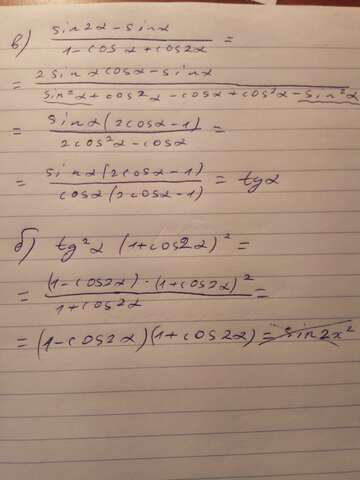 в) (sin2α - sinα)/(1 - cosα + cos2α) =
= (2sinαcosα - sinα)/(sin²α + cos²α - cosα + cos²α - sin²α)
= (sinα(2cosα - 1))/(2cos²α - cosα) =
= (sinα(2cosα - 1))/(cosα(2cosα - 1)) = tgα
б) tg²α (1 + cos2α)² =
= ((1 - cos2α) · (1 + cos2α)²)/(1 + cos2α) =
= (1 - cos2α)(1 + cos2α) = sin2x²